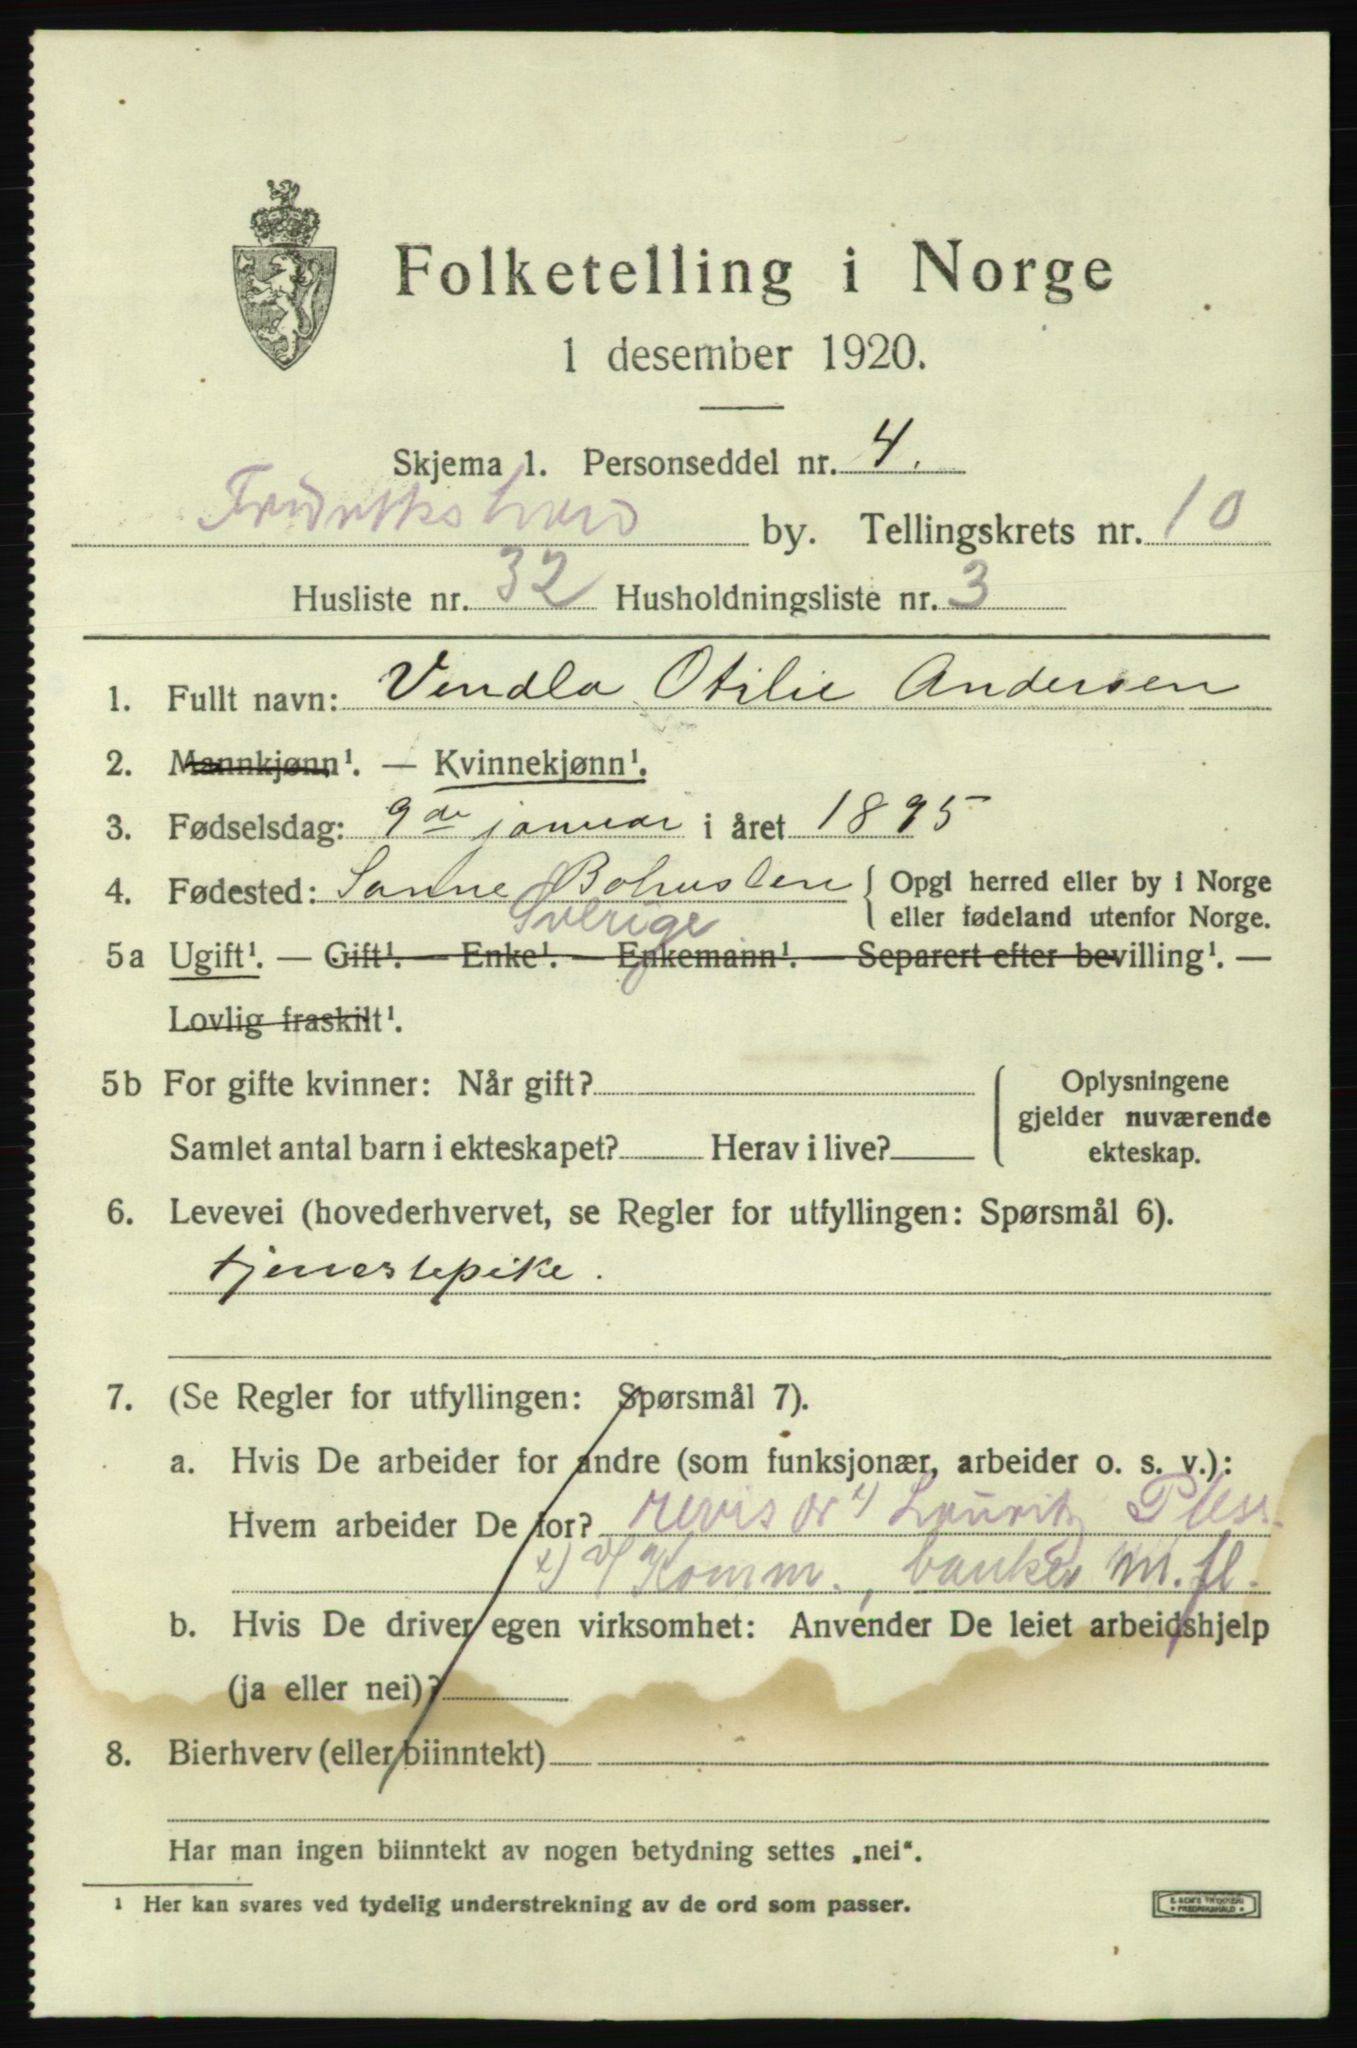 Folketelling i Norge
1 desember 1920.
Skjema 1. Personseddel nr. 4.
by. Tellingskrets nr. 10
Husliste nr. 32 Husholdningsliste nr. 3
1. Fullt navn: Vendla Otilie Andersen
2. Mannkjønn¹. — Kvinnekjønn¹.
3. Fødselsdag: 9de januar i året 1895
4. Fødested: Sanne Bohuslen { Opgi herred eller by i Norge
eller fødeland utenfor Norge.
Sverige
5a Ugift¹. — Gift¹. — Enke¹. — Enkemann¹. — Separert efter bevilling¹. —
Lovlig fraskilt¹.
5b For gifte kvinner: Når gift?
Samlet antal barn i ekteskapet? Herav i live?
{ Oplysningene
gjelder nuværende
ekteskap.
6. Levevei (hovederhvervet, se Regler for utfyllingen: Spørsmål 6).
tjenestepike.
7. (Se Regler for utfyllingen: Spørsmål 7).
a. Hvis De arbeider for andre (som funksjonær, arbeider o. s. v.):
Hvem arbeider De for? revisor x) Lauritz Pless
x) v/ Komm., banker m. fl.
b. Hvis De driver egen virksomhet: Anvender De leiet arbeidshjelp
(ja eller nei)?
8. Bierhverv (eller biinntekt)
Har man ingen biinntekt av nogen betydning settes „nei“.
¹ Her kan svares ved tydelig understrekning av de ord som passer.
FREDRIKSHALD